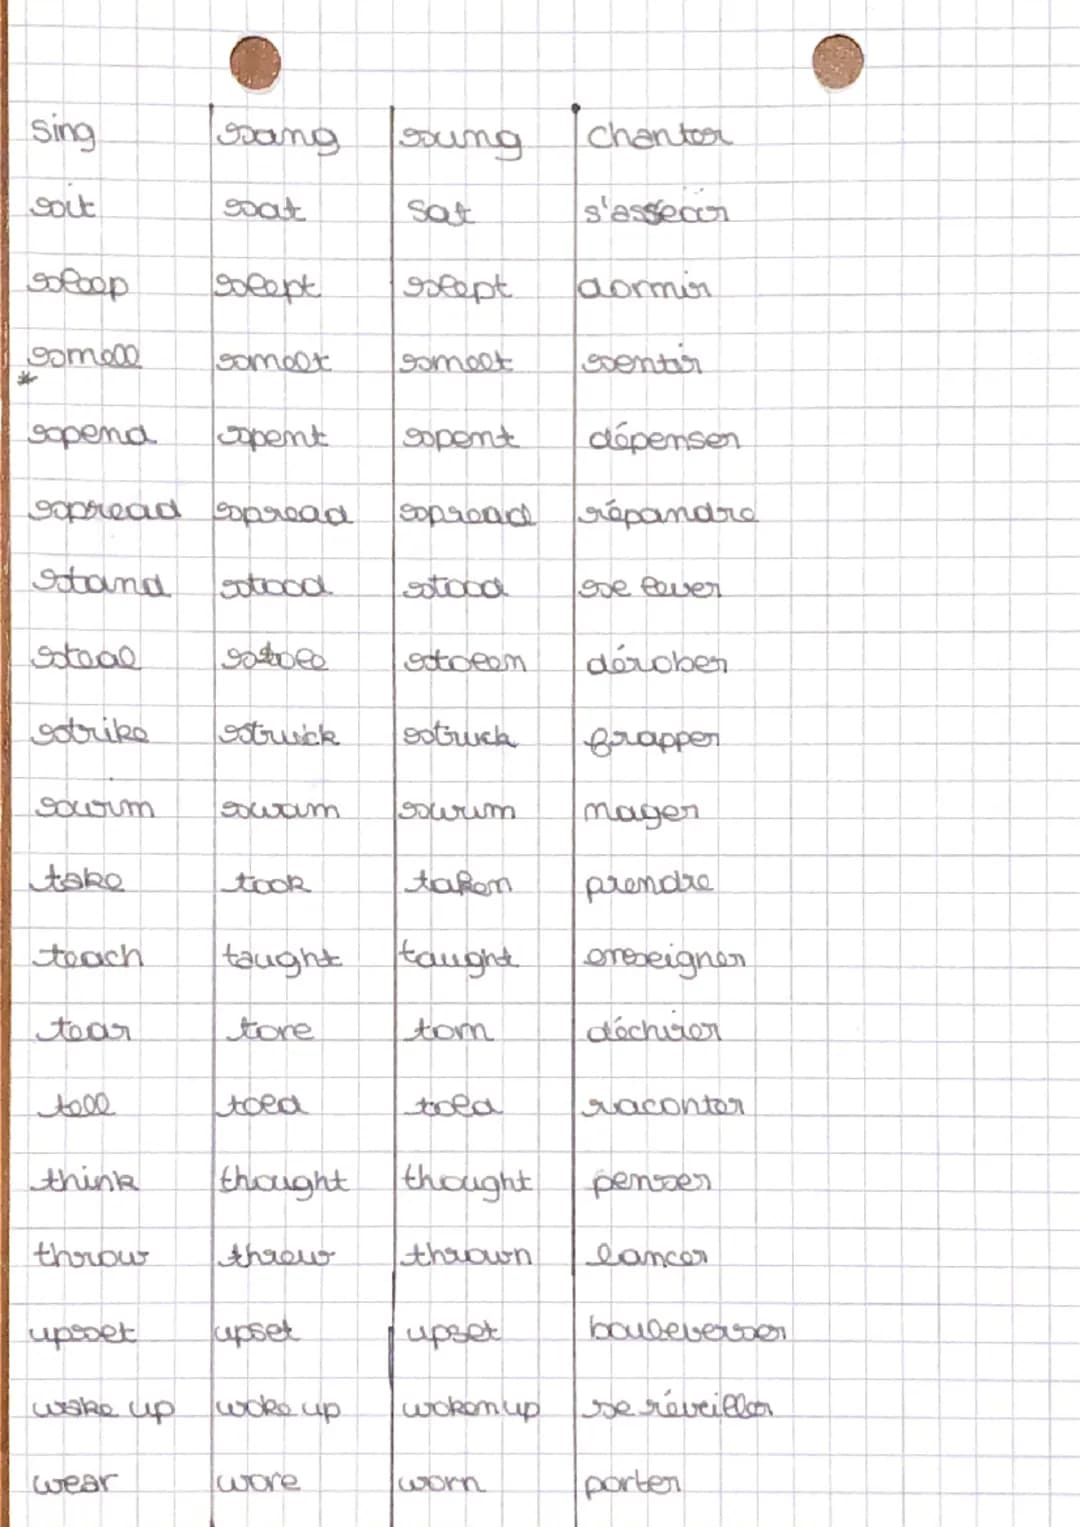 sing sang sung chanter
sit sat sat s'asseoir
sleep slept slept dormir
smell smelt smelt sentir
*
spend spent spent dépenser
spread spread spread répandre
stand stood stood se lever
steal stole stolen dérober
strike struck struck frapper
swim swam swum nager
take took taken prendre
teach taught taught enseigner
tear tore torn déchirer
tell told told raconter
think thought thought penser
throw threw thrown lancer
upset upset upset bouleverser
wake up woke up woken up se réveiller
wear wore worn porter